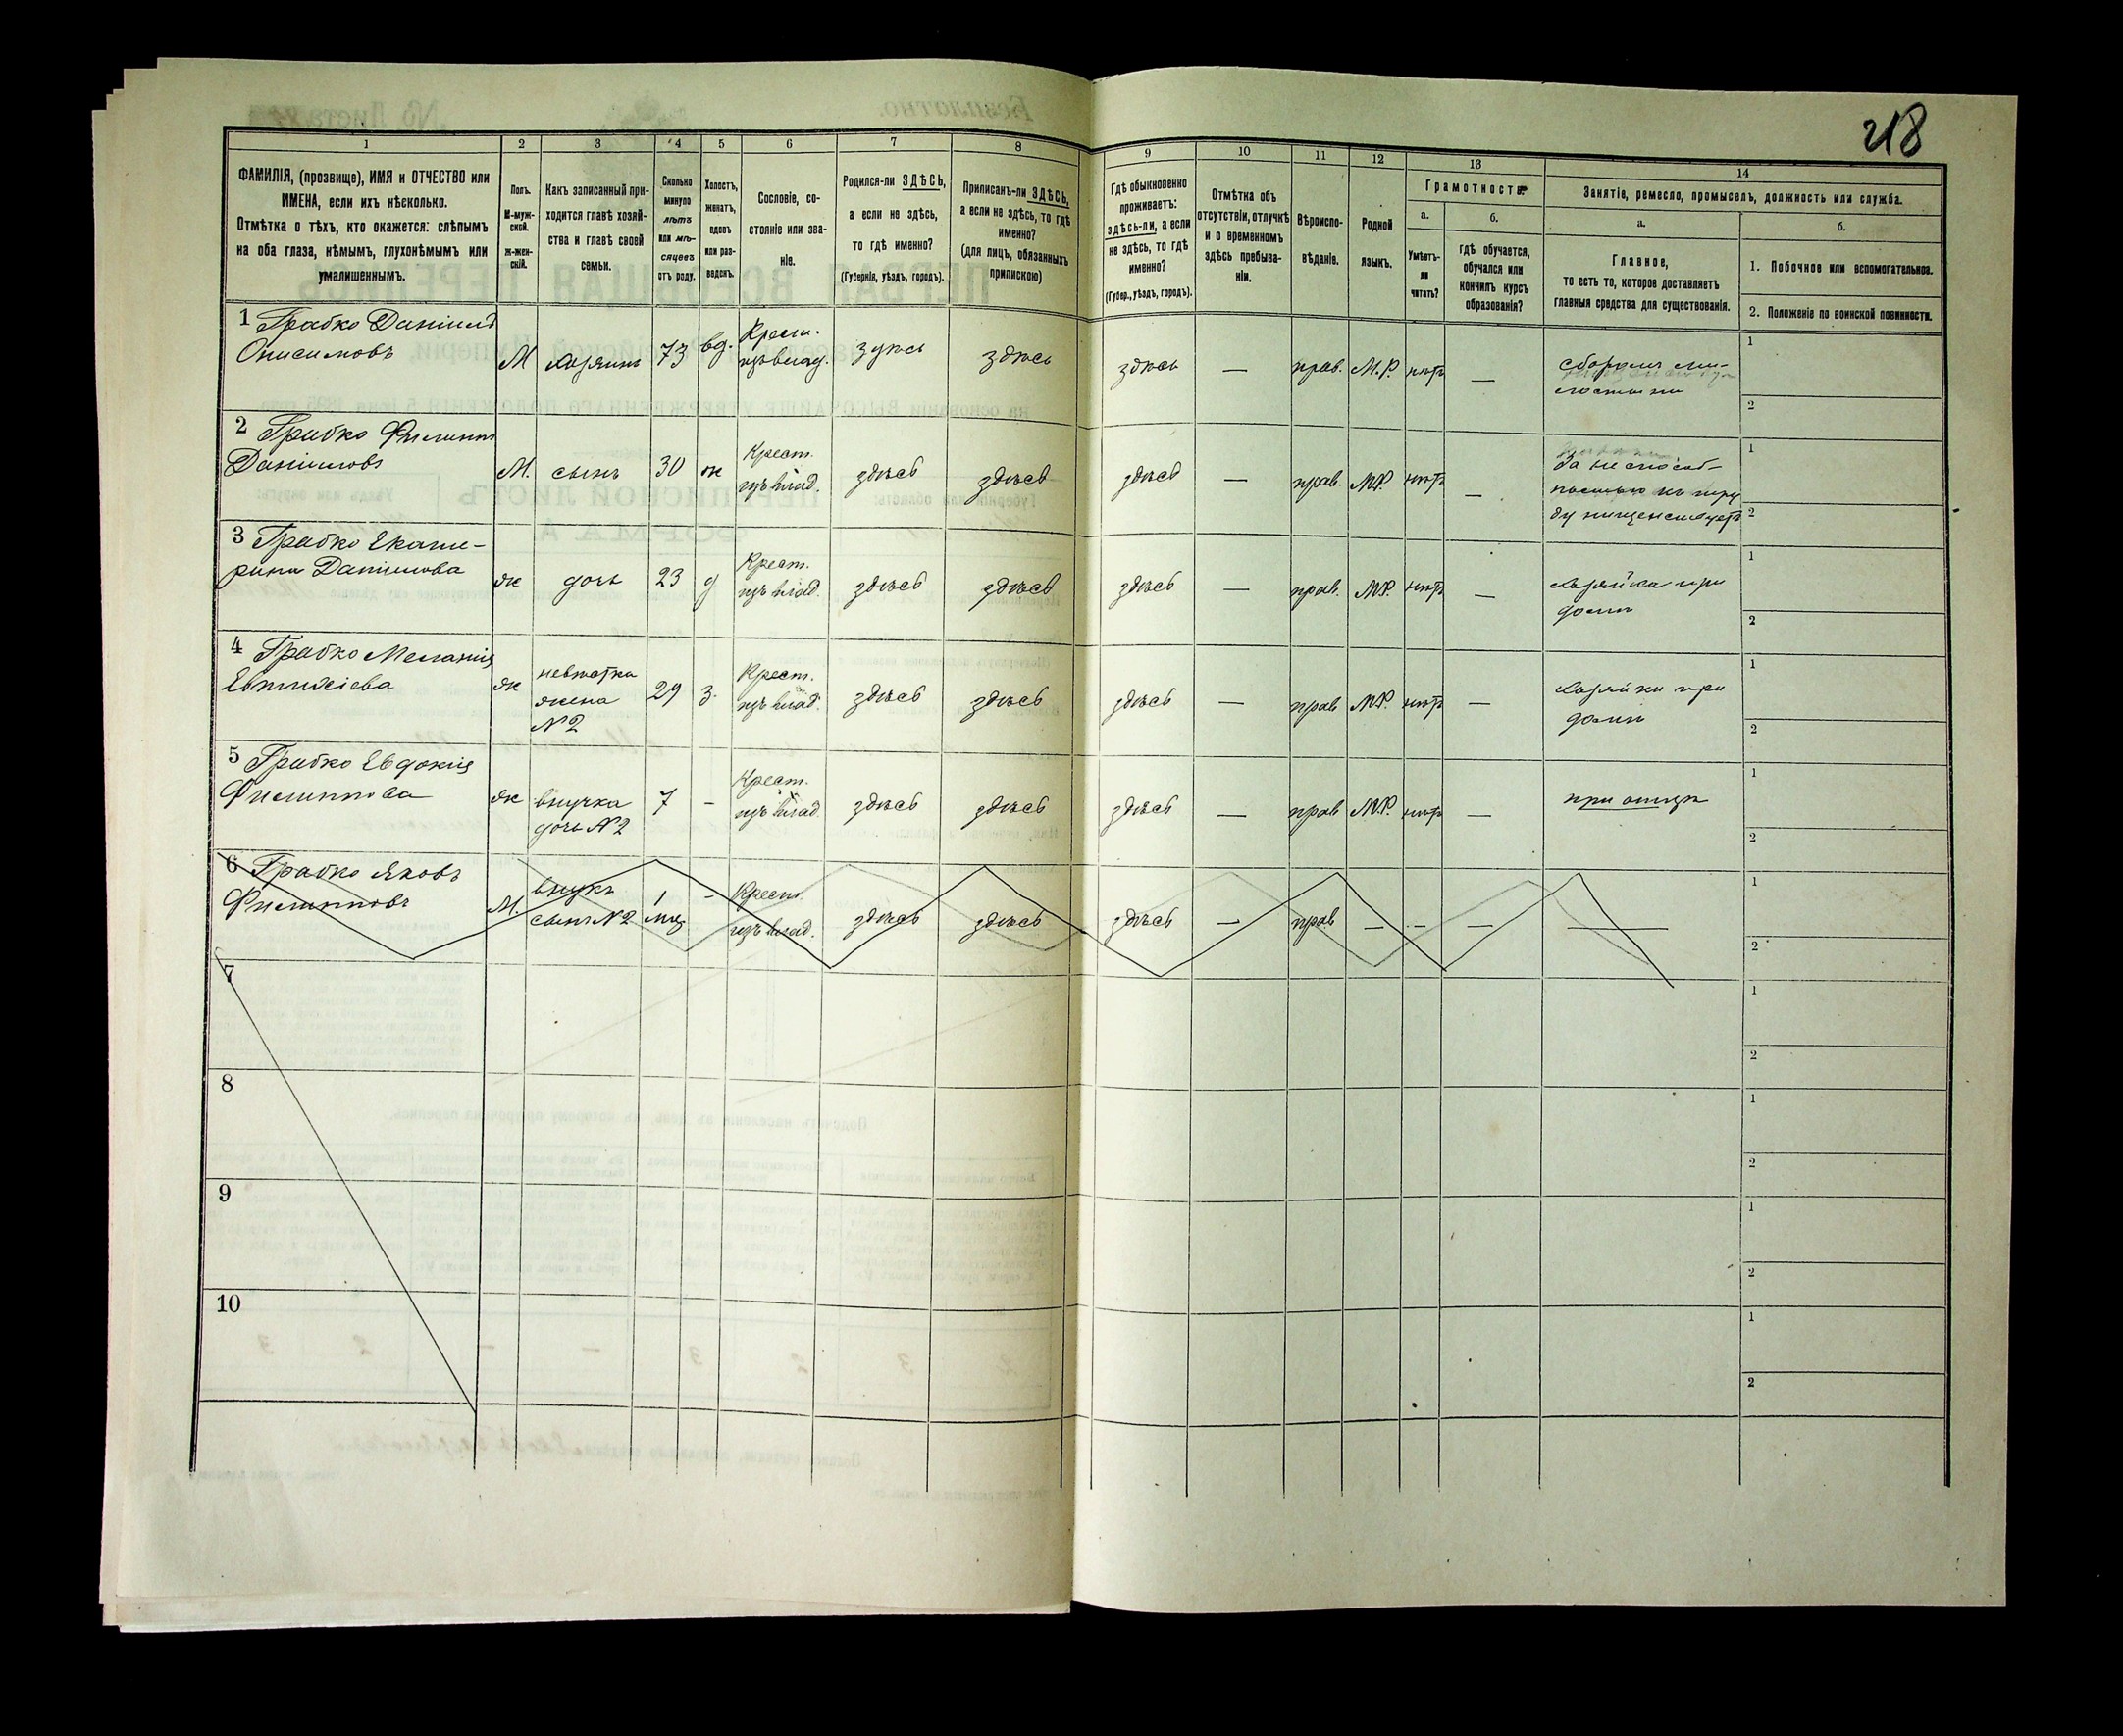 218
1
2
3
4
5
6
7
8
9
10
11
12
13
14
ФАМИЛІЯ, (прозвище), ИМЯ и ОТЧЕСТВО или
ИМЕНА, если ихъ нѣсколько.
Отмѣтка о тѣхъ, кто окажется: слѣпымъ
на оба глаза, нѣмымъ, глухонѣмымъ или
умалишеннымъ.
Полъ.
М-муж-
ской.
Ж-жен-
скій.
Какъ записанный при-
ходится главѣ хозяй-
ства и главѣ своей
семьи.
Сколько
минуло
лѣтъ
или мѣ-
сяцевъ
отъ роду.
Холостъ,
женатъ,
вдовъ
или раз-
веденъ.
Сословіе, со-
стояніе или зва-
ніе.
Родился-ли ЗДѢСЬ,
а если не здѣсь,
то гдѣ именно?
(Губернія, уѣздъ, городъ).
Приписанъ-ли ЗДѢСЬ,
а если не здѣсь, то гдѣ
именно?
(для лицъ, обязанныхъ
припискою)
Гдѣ обыкновенно
проживаетъ:
здѣсь-ли, а если
не здѣсь, то гдѣ
именно?
(Губер., уѣздъ, городъ).
Отмѣтка объ
отсутствіи, отлучкѣ
и о временномъ
здѣсь пребыва-
ніи.
Вѣроиспо-
вѣданіе.
Родной
языкъ.
Грамотность.
а.
Умѣетъ-
ли
читать?
б.
Гдѣ обучается,
обучался или
кончилъ курсъ
образованія?
Занятіе, ремесло, промыселъ, должность или служба.
а.
Главное,
то есть то, которое доставляетъ
главныя средства для существованія.
б.
1. Побочное или вспомогательное.
2. Положеніе по воинской повинности.
1 Грабко Даніилъ
Онисимовъ
М хозяинъ 73 вд. Крест. изъ влад. здѣсь здѣсь здѣсь — прав. М.Р. нѣтъ —
сборомъ ми-
лостыни
1
2
2 Грабко Филиппъ
Даніиловъ
М. сынъ 30 ж Крест. изъ влад. здѣсь здѣсь здѣсь — прав. М.Р. нѣтъ —
За неспособ-
ностью къ тру
ду нищенствуетъ
1
2
3 Грабко Екате-
рина Даніилова
ж дочь 23 д Крест. изъ влад. здѣсь здѣсь здѣсь — прав. М.Р. нѣтъ —
хозяйка при
домѣ
1
2
4 Грабко Меланія
Евтихіева
ж невѣстка
жена
№ 2
29 з. Крест. изъ влад. здѣсь здѣсь здѣсь — прав М.Р. нѣтъ —
хозяйки при
домѣ
1
2
5 Грабко Евдокія
Филиппова
ж внучка
дочь № 2
7 - Крест. изъ влад. здѣсь здѣсь здѣсь — прав М.Р. нѣтъ —
при отцѣ
1
2
6 Грабко Яковъ
Филипповъ
М. внукъ
сынъ № 2
1 мѣс - Крест. изъ влад. здѣсь здѣсь здѣсь — прав — — — —
1
2
7
1
2
8
1
2
9
1
2
10
1
2